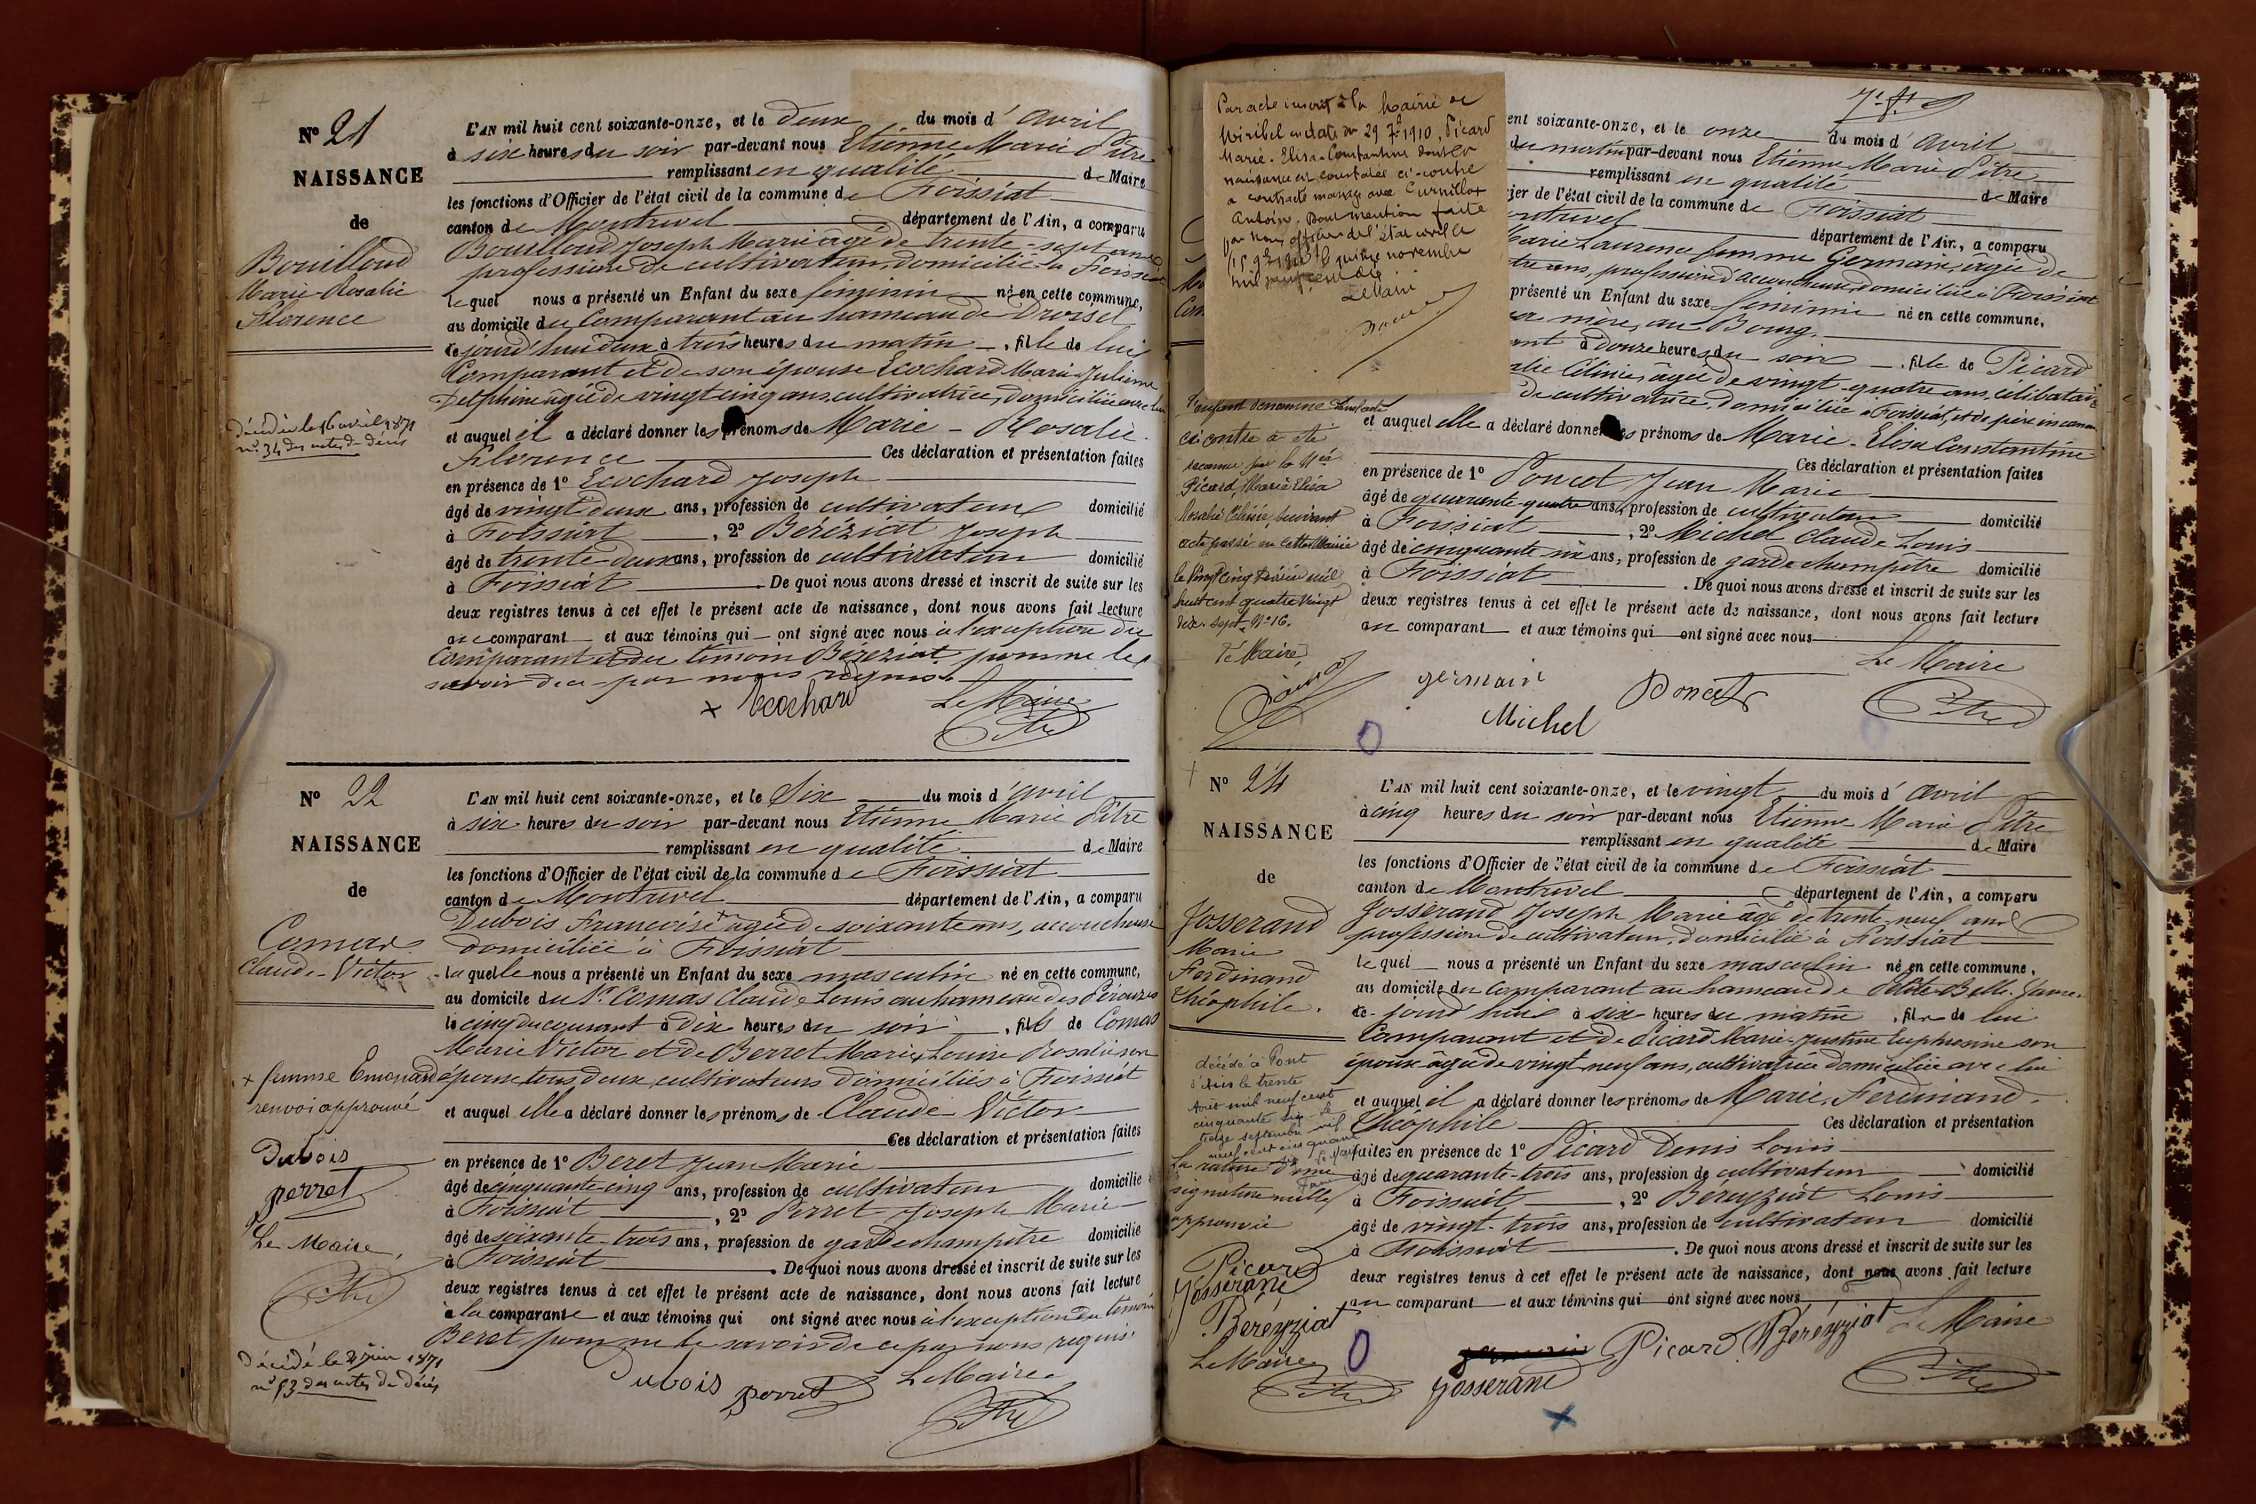 Nº 21
NAISSANCE
de
Bouilloud
Marie-Rosalie
Florence
décédée le 16 avril 1871
nº 34 des actes de décès
L'AN mil huit cent soixante-onze, et le deux du mois d'avril
à six heures du soir par-devant nous Etienne Marie Pitre
remplissant en qualité de Maire
les fonctions d'Officier de l'état civil de la commune de Foissiat
canton de Montrevel département de l'Ain, a comparu
Bouilloud Joseph Marie âgé de trente-sept ans
profession de cultivateur, domicilié à Foissiat
lequel nous a présenté un Enfant du sexe féminin né en cette commune,
au domicile du Comparant au hameau de
ce jourd'hui deux à trois heures du matin, fille de lui
Comparant et de son épouse Ecochard Marie Julienne
Delphine âgée de vingt cinq ans, cultivatrice, domiciliée avec lui
et auquel il a déclaré donner les prénoms de Marie-Rosalie
Florence Ces déclaration et présentation faites
en présence de 1º Ecochard Joseph
âgé de vingt deux ans, profession de cultivateur domicilié
à Foissiat, 2º Beréziat Joseph
âgé de trente-deux ans, profession de cultivateur domicilié
à Foissiat. De quoi nous avons dressé et inscrit de suite sur les
deux registres tenus à cet effet le présent acte de naissance, dont nous avons fait lecture
au comparant et aux témoins qui ont signé avec nous à l'exception du
Comparant et du témoin Béreziat pour ne le
savoir de ce par nous requis.
x Ecochard Le Maire
Pitre
Nº 22
NAISSANCE
de
Comas
Claude-Victor
x femme Emonard
renvoi approuvé
Dubois
perret
Le Maire,
Pitre
Décédé le juin 1871
nº 53 des actes de décès
L'AN mil huit cent soixante-onze, et le Six du mois d'avril
à six heures du soir par-devant nous Etienne Marie Pitre
remplissant en qualité de Maire
les fonctions d'Officier de l'état civil de la commune de Foissiat
canton de Montrevel département de l'Ain, a comparu
Dubois Francoise x agée de soixante ans, accoucheuse
domiciliée à Foissiat
laquelle nous a présenté un Enfant du sexe masculin né en cette commune,
au domicile du Sr Comas Claude Louis au hameau des Pérouzes
le cinq du courant à Dix heures du soir, fils de Comas
Marie Victor et de Berret Marie Louise Rosalie son
épouse tous deux cultivateurs domiciliés à Foissiat
et auquel elle a déclaré donner les prénoms de Claude-Victor
Ces déclaration et présentation faites
en présence de 1º Beret Jean Marie
âgé de cinquante-cinq ans, profession de cultivateur domicilié
à Foissiat, 2º Perret Joseph Marie
âgé de soixante-trois ans, profession de garde champêtre domicilié
à Foissiat. De quoi nous avons dressé et inscrit de suite sur les
deux registres tenus à cet effet le présent acte de naissance, dont nous avons fait lecture
à la comparante et aux témoins qui ont signé avec nous à l'exception du témoin
Beret pour ne le savoir de ce par nous requis.
Dubois perret Le Maire
Pitre
Par acte inscrit à la Mairie de
Miribel en date du 29 7bre 1910, Picard
Marie-Elisa-Constantine dont la
naissance est constatée ci-contre
a contracté mariage avec Curvillat
Antoine. Dont mention faite
par nous officier de l'état civil le
quinze novembre
mil neuf cent dix
Le Maire
l'enfant dénommé
ci contre a été
reconnu par la Mée
Picard, Marie Elisa
Rosalie Célinie, suivant
acte passé en cette Mairie
le vingt cinq Février mil
huit cent quatre vingt
dix-sept Nº 16.
Le Maire,
ent soixante-onze, et le onze du mois d'avril
du matin par-devant nous Etienne Marie Pitre
remplissant en qualité de Maire
ier de l'état civil de la commune de Foissiat
ontrevel département de l'Ain, a comparu
Marie Laurence femme Germain, âgée de
tre ans, profession d'accoucheuse, domiciliée à Foissiat
présenté un Enfant du sexe féminin né en cette commune,
mère, au Bourg.
ant à douze heures du soir, fille de Picard
alie Célinie, âgée de vingt-quatre ans, célibataire
de cultivatrice, domiciliée à Foissiat, et de père inconnu
et auquel elle a déclaré donner les prénoms de Marie-Elisa Constantine
Ces déclaration et présentation faites
en présence de 1º Poncet Jean Marie
âgé de quarante-quatre ans, profession de cultivateur domicilié
à Foissiat, 2º Michel Claude Louis
âgé de cinquante-six ans, profession de garde champêtre domicilié
à Foissiat. De quoi nous avons dressé et inscrit de suite sur les
deux registres tenus à cet effet le présent acte de naissance, dont nous avons fait lecture
au comparant et aux témoins qui ont signé avec nous
Le Maire
germain Poncet Pitre
Michel
Nº 24
NAISSANCE
de
Josserand
Marie
Ferdinand
Théophile.
décédé à Pont
d'Ain le trente
Août mil neuf cent
cinquante six le
treize septembre mil
neuf cent cinquante
La rature d'une
signature nulle
approuvée
Picard
Josserand
Béréyziat
Le Maire
Pitre
L'AN mil huit cent soixante-onze, et le vingt du mois d'avril
à cinq heures du soir par-devant nous Etienne Marie Pitre
remplissant en qualité de Maire
les fonctions d'Officier de l'état civil de la commune de Foissiat
canton de Montrevel département de l'Ain, a comparu
Josserand Joseph Marie âgé de trente-neuf ans
profession de cultivateur, domicilié à Foissiat
lequel nous a présenté un Enfant du sexe masculin né en cette commune,
au domicile du Comparant au hameau de
ce jourd'hui à six heures du matin, fils de lui
Comparant et de Picard Marie-Justine Euphrosine son
épouse âgée de vingt neuf ans, cultivatrice domiciliée avec lui
et auquel il a déclaré donner les prénoms de Marie, Ferdinand-
Théophile Ces déclaration et présentation
faites en présence de 1º Picard Denis Louis
âgé de quarante-trois ans, profession de cultivateur domicilié
à Foissiat, 2º Béreyziat Louis
âgé de vingt-trois ans, profession de cultivateur domicilié
à Foissiat. De quoi nous avons dressé et inscrit de suite sur les
deux registres tenus à cet effet le présent acte de naissance, dont nous avons fait lecture
au comparant et aux témoins qui ont signé avec nous
Picard Béréyziat Le Maire
Josserand Pitre